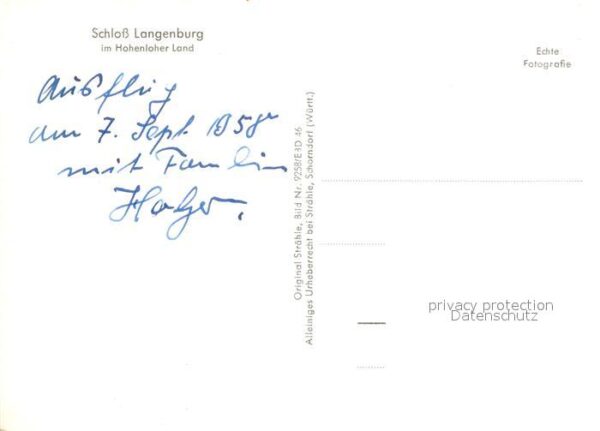 Schloß Langenburg
im Hohenloher Land
Echte
Fotografie
Ausflug
am 7. Sept 1958
mit Familie
Original Strähle, Bild Nr. 9258FEBD 46
Alleiniges Urheberrecht bei Strähle, Schorndorf (Württ.)
privacy protection
Datenschutz